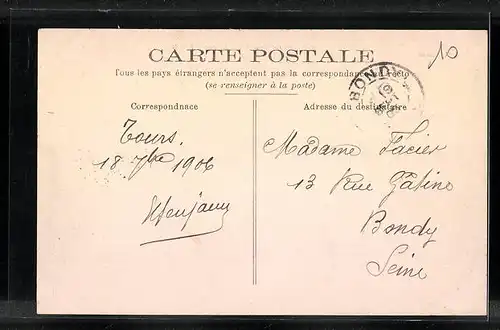 CARTE POSTALE
Tous les pays étrangers n'acceptent pas la correspondance au recto
(se renseigner à la poste)
Correspondnace
Adresse du destinataire
10
BONDY
Tours.
18 7bre 1906
Madame Facier
13 Rue Gâtine
Bondy
Seine